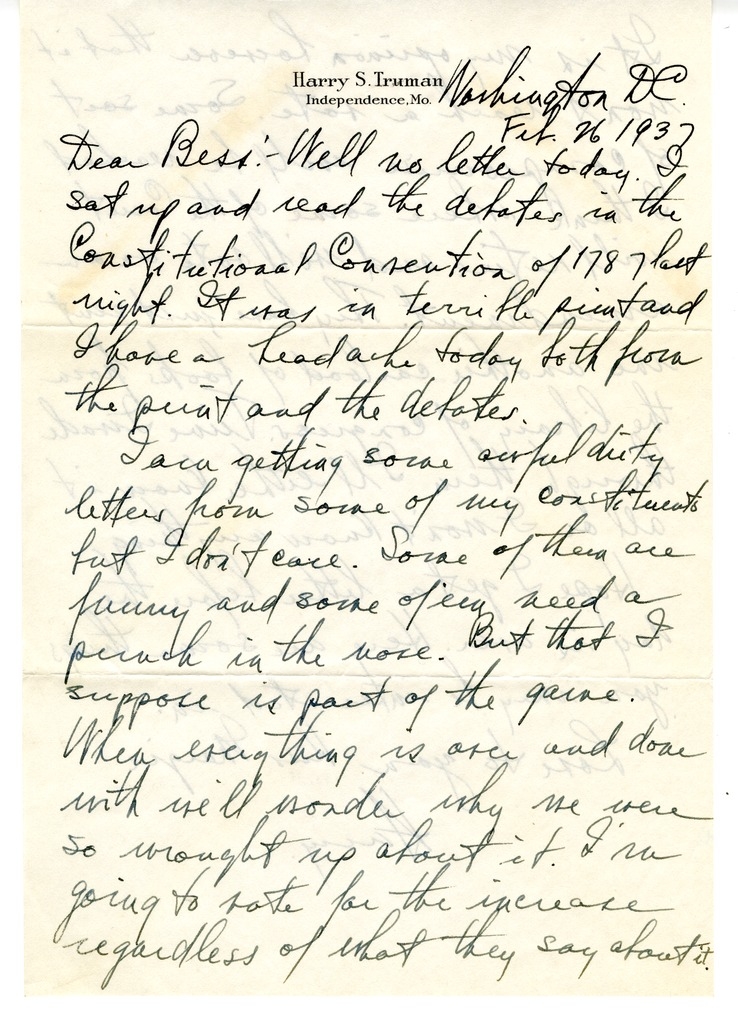 Harry S. Truman
Independence, Mo.
Washington DC.
Feb. 26 1937
Dear Bess:- Well no letter today. I
sat up and read the debates in the
Constitutional Convention of 1787 last
night. It was in terrible print and
I have a headache today both from
the print and the debates.
I am getting some awful dirty
letters from some of my constituents
but I don't care. Some of them are
funny and some of 'em need a
punch in the nose. But that I
suppose is part of the game.
When everything is over and done
with we'll wonder why we were
so wrought up about it. I'm
going to vote for the increase
regardless of what they say about it.